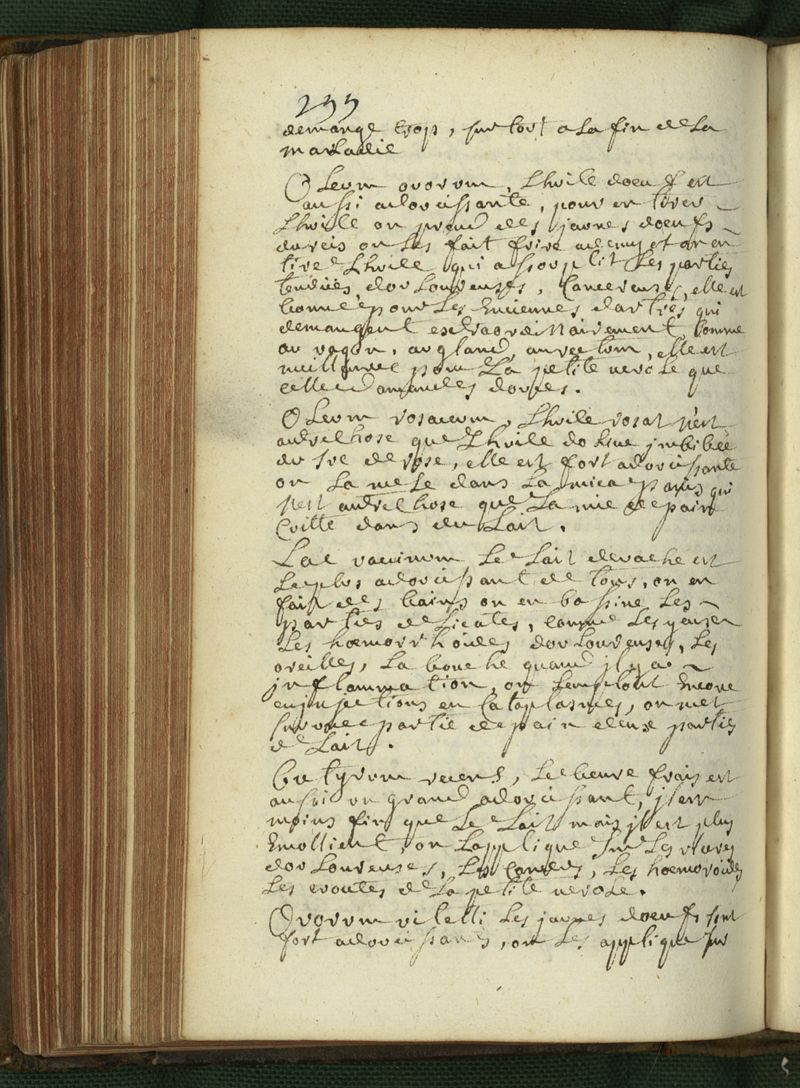 299
demange trop, sur tout a la fin de la
maladie
Oleum ovorum, Lhuile doeuf est
aussi adoucissante, pour en tirer
Lhuile on prend des jaunes doeufs
durcis on les fait frire
tire Lhuile qui assouplit les parties
tendües, douloureuses, Cancereuses, elle est
bonne pour les Enciennes dartres qui
demangent extraordinairement, Comme
au vagin, au gland, au rectum, elle est
meilleure pour La petite verole que
celle damandes douces.
Oleum rosaceum, Lhuile rosat nest
autrechose que Lhuile dolive jmbibée
du suc de rose, elle est fort adoucissante
on La mele dans La mica panis qui
nest autrechose que La mie de pain
Cuitte dans du Lait.
Lac vaccinum Le Lait de vache est
Le plus adoucissant de tous, on en
fait des bains on en bassine Les
parties delicates, comme Les yeux
Les hoemorrhoides douloureuses, Les
oreilles, La bouche quand jl y a
jnflammation, on Lemploit Encore
en jnjections en Cataplasmes, on met
sur une partie de pain deux parties
de Lait.
Butyrum recens, Le beure frais est
aussi un grand adoucissant, jl est
moins fin que Le Lait mais jl est plus
Emollient, on Lapplique sur Les
douloureuses, Les Les hoemoroides
Les croutes de La petite verole.
Ovorum vitelli Les jaunes doeufs sont
fort adoucissans, on Les applique sur